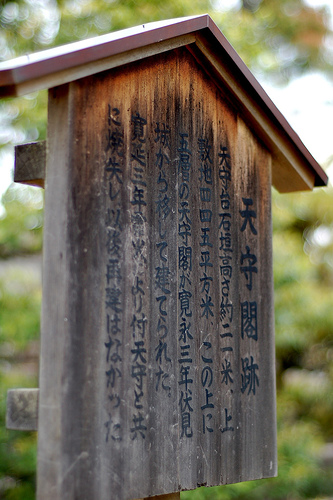 天守閣跡
天守台石垣高さ約二一米、上
敷地廿四五平方米 この上に
五層の天守閣が寛永三年伏見
城から移して建てられた
寛延三年の火により付天守と共
に焼失し以後再建はなかった